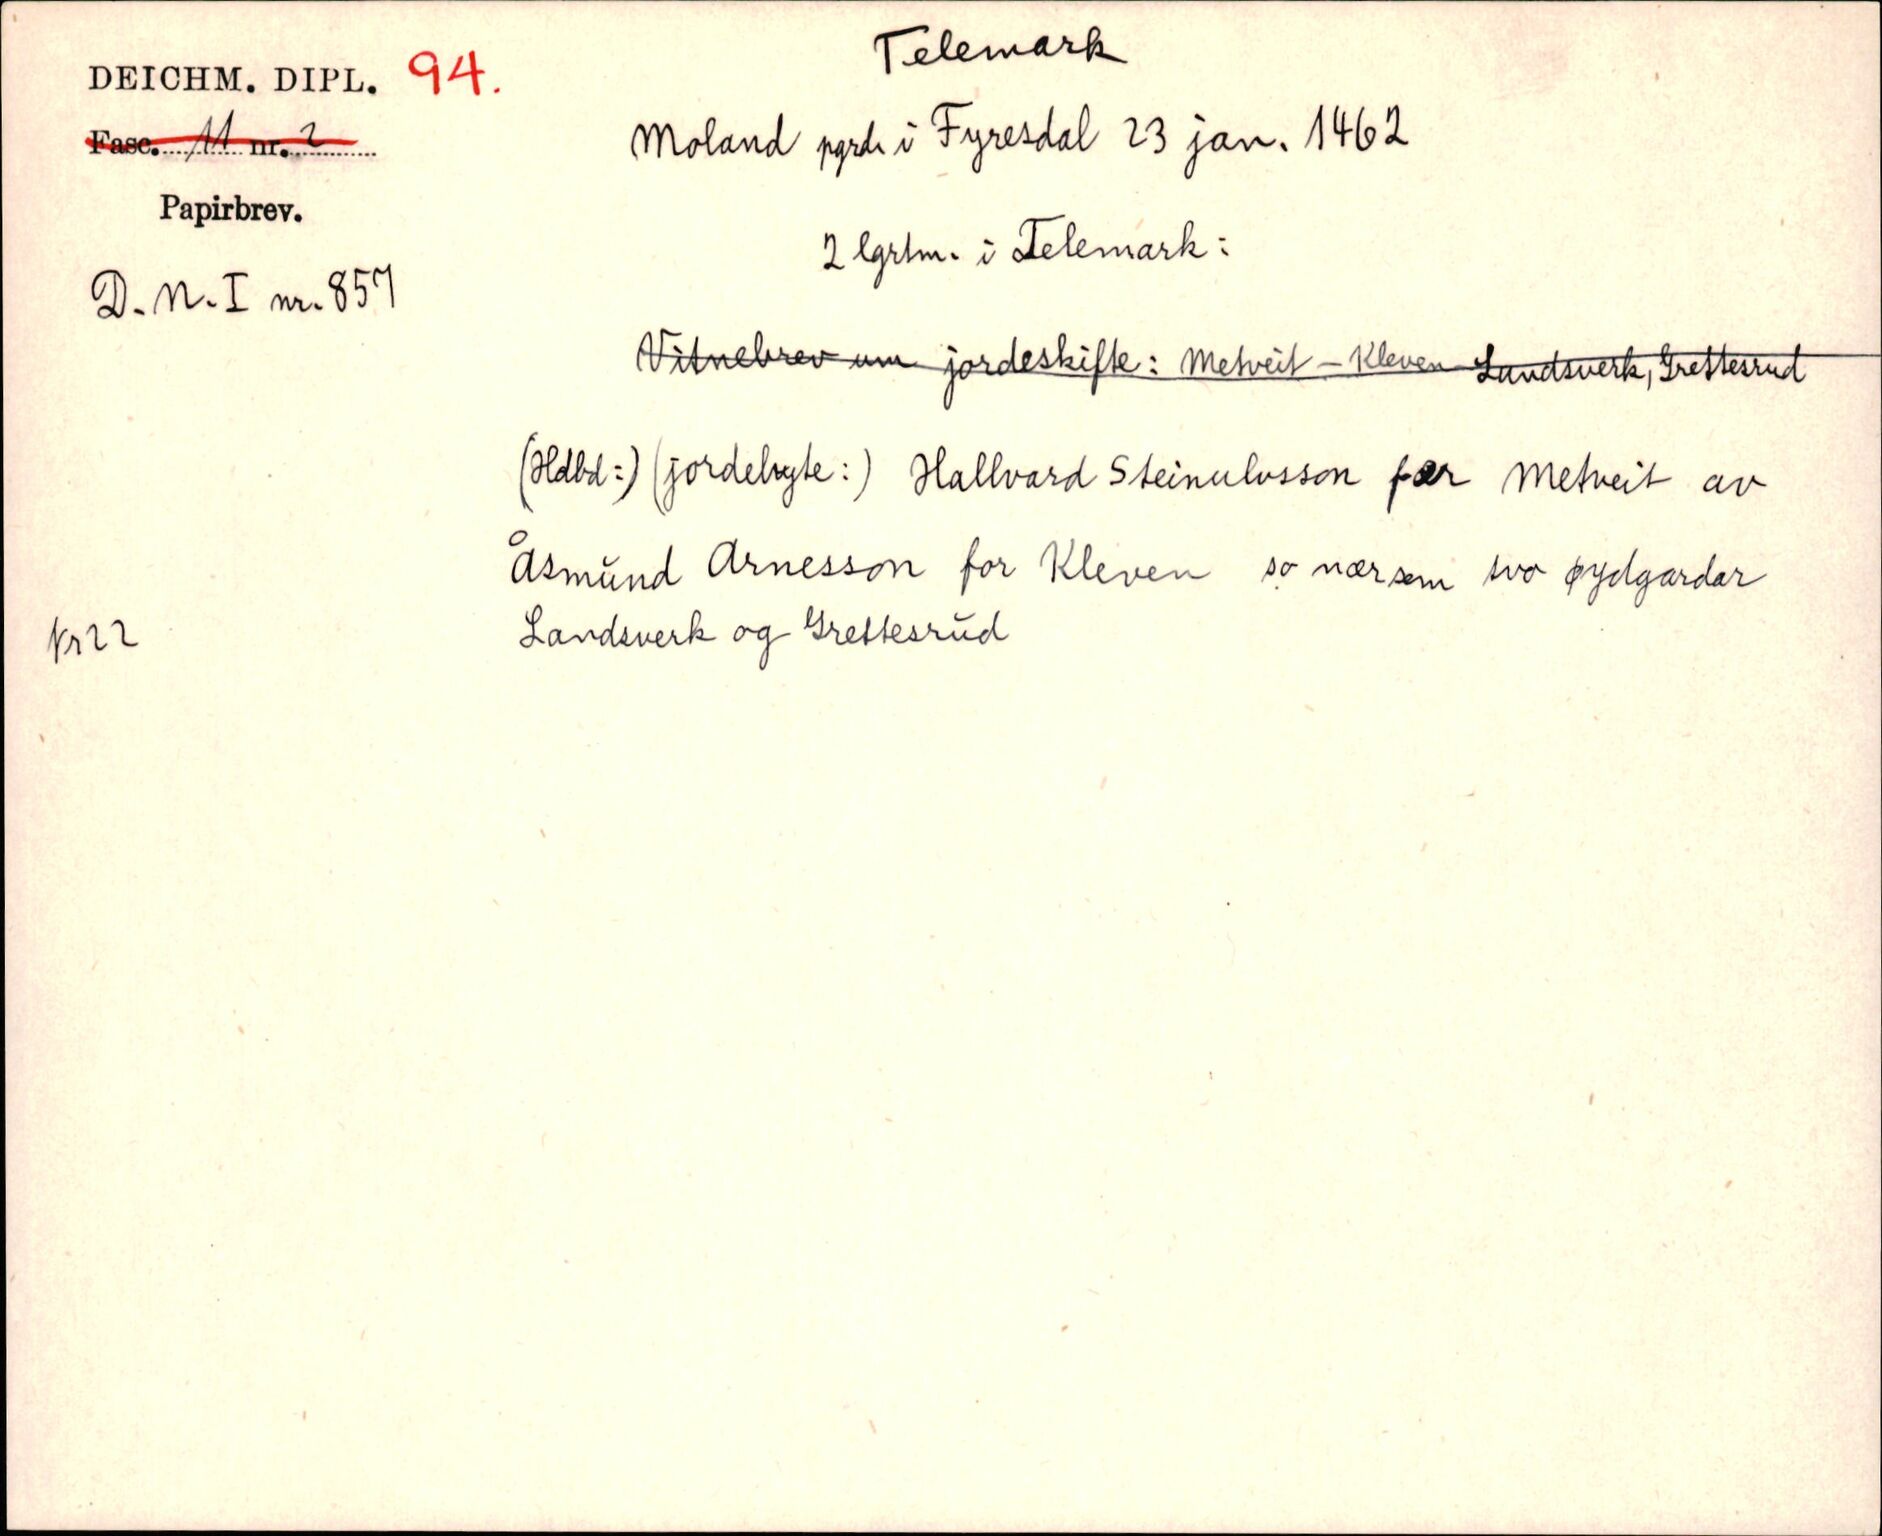 Telemark
DEICHM. DIPL. 94.
Fasc. 11 nr. 2
Moland pgrd. i Fyresdal 23 jan. 1462
Papirbrev.
2 lgrtm. i Telemark:
D. N. I nr. 857
Vitnebrev um jordeskifte: Metveit - Kleven Landsverk, Grettesrud
(Hdbd:) (jordebyte:) Hallvard Steinulvsson fær Metveit av
Åsmund Arnesson for Kleven so nær sem tvo øydgardar
Nr 22 Landsverk og Grettesrud